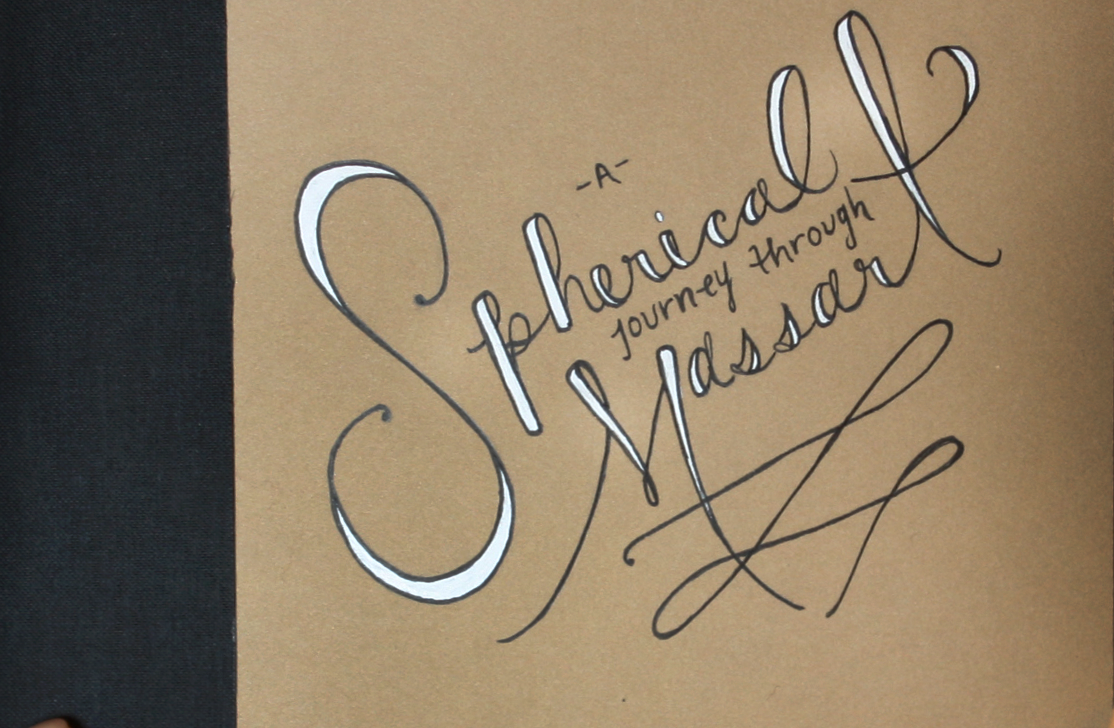 -A-
Spherical
Journey through
Massart